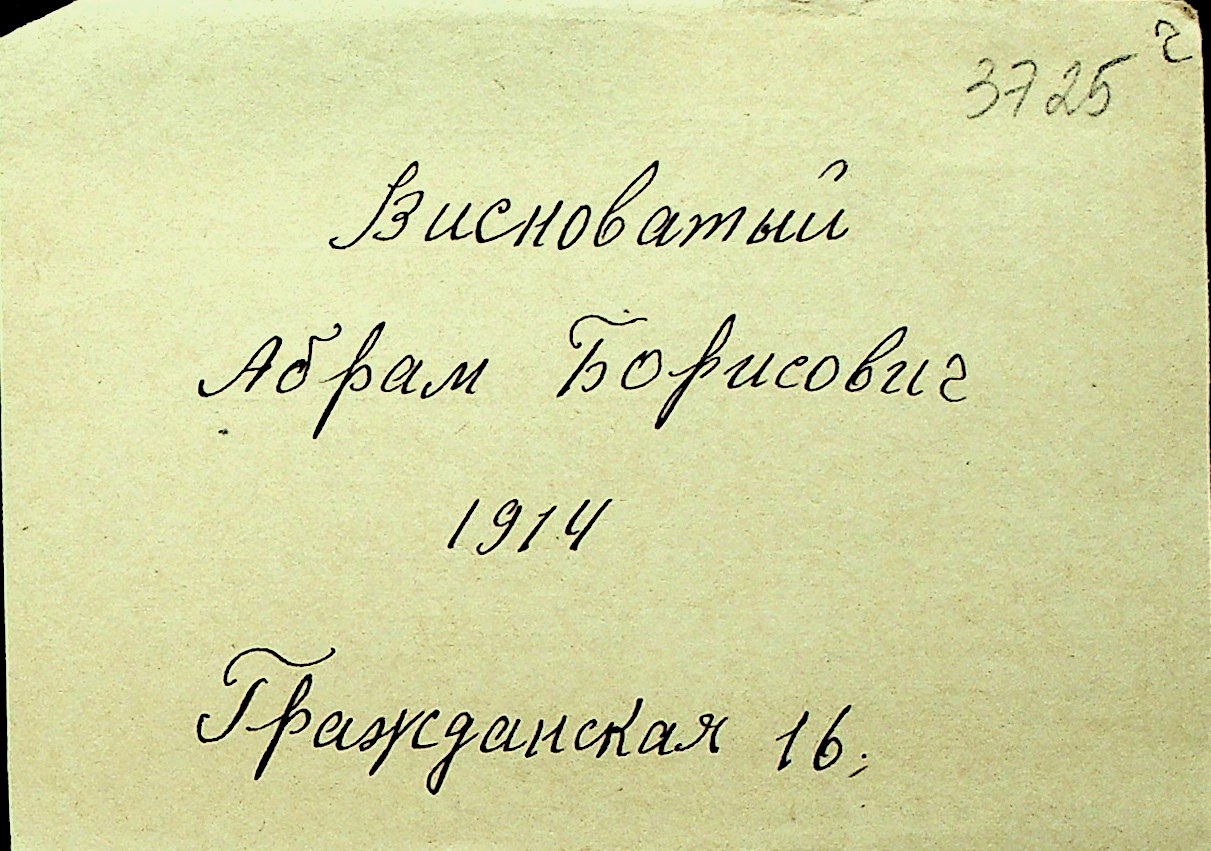 3725 г
Висноватый
Абрам Борисович
1914
Гражданская 16;